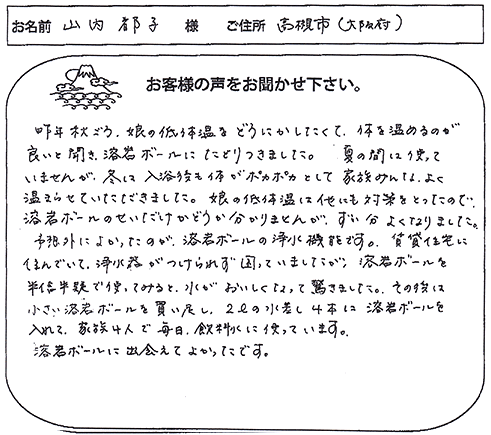 お名前 山内 都子 様 ご住所 高槻市(大阪府)
お客様の声をお聞かせ下さい。
昨年秋ごろ、娘の低体温をどうにかしたくて、体を温めるのが
良いと聞き、溶岩ボールにたどりつきました。 夏の間は使って
いませんが、冬は入浴後も体がポカポカとして家族みんな、よく
温まらせていただきました。娘の低体温は他にも対策をとったので、
溶岩ボールのせいだけかどうか分かりませんが、ずい分よくなりました。
予想外によかったのが、溶岩ボールの浄水機能です。賃貸住宅に
住んでいて、浄水器がつけられず困っていましたが、溶岩ボールを
半信半疑で使ってみると、水がおいしくなって驚きました。その後は
小さい溶岩ボールを買い足し、2ℓの水差し4本に溶岩ボールを
入れて、家族4人で毎日、飲料水に使っています。
溶岩ボールに出会えてよかったです。